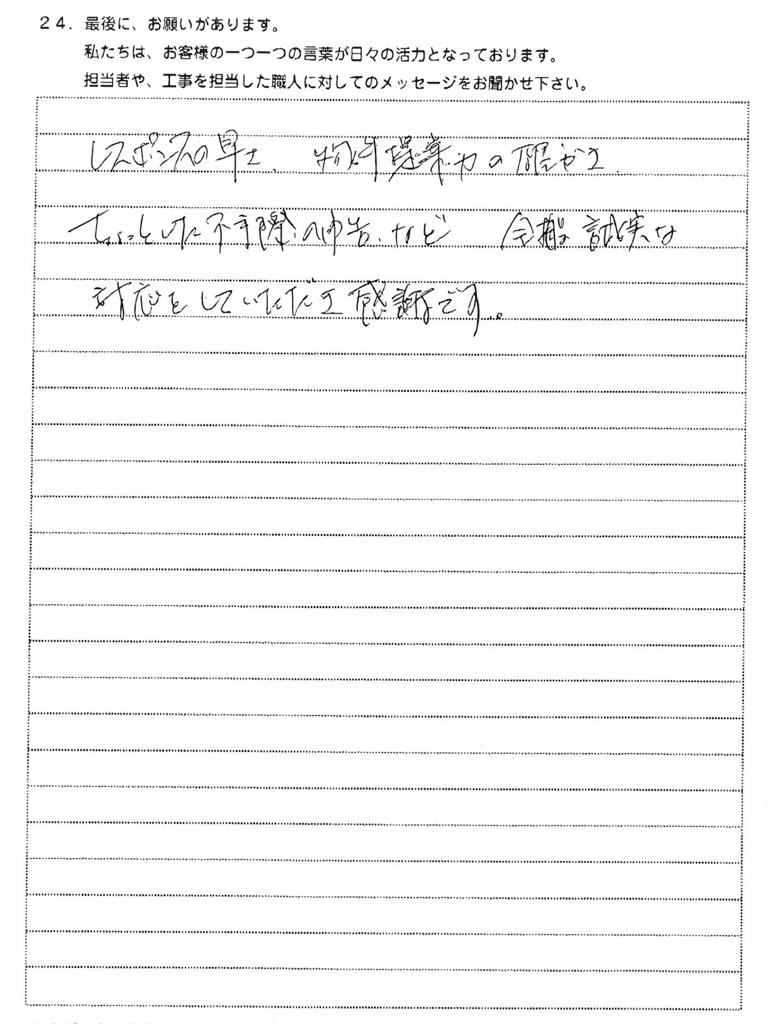 24. 最後に、お願いがあります。
私たちは、お客様の一つ一つの言葉が日々の活力となっております。
担当者や、工事を担当した職人に対してのメッセージをお聞かせ下さい。
レスポンスの早さ、物件提案力の確かさ、
ちょっとした不手際の申告、など 全般誠実な
対応をしていただき感謝です。